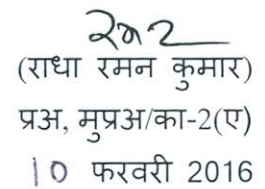 (राधा रमन कुमार)
प्रअ, मुप्रअ/का-2(ए)
10 फरवरी 2016